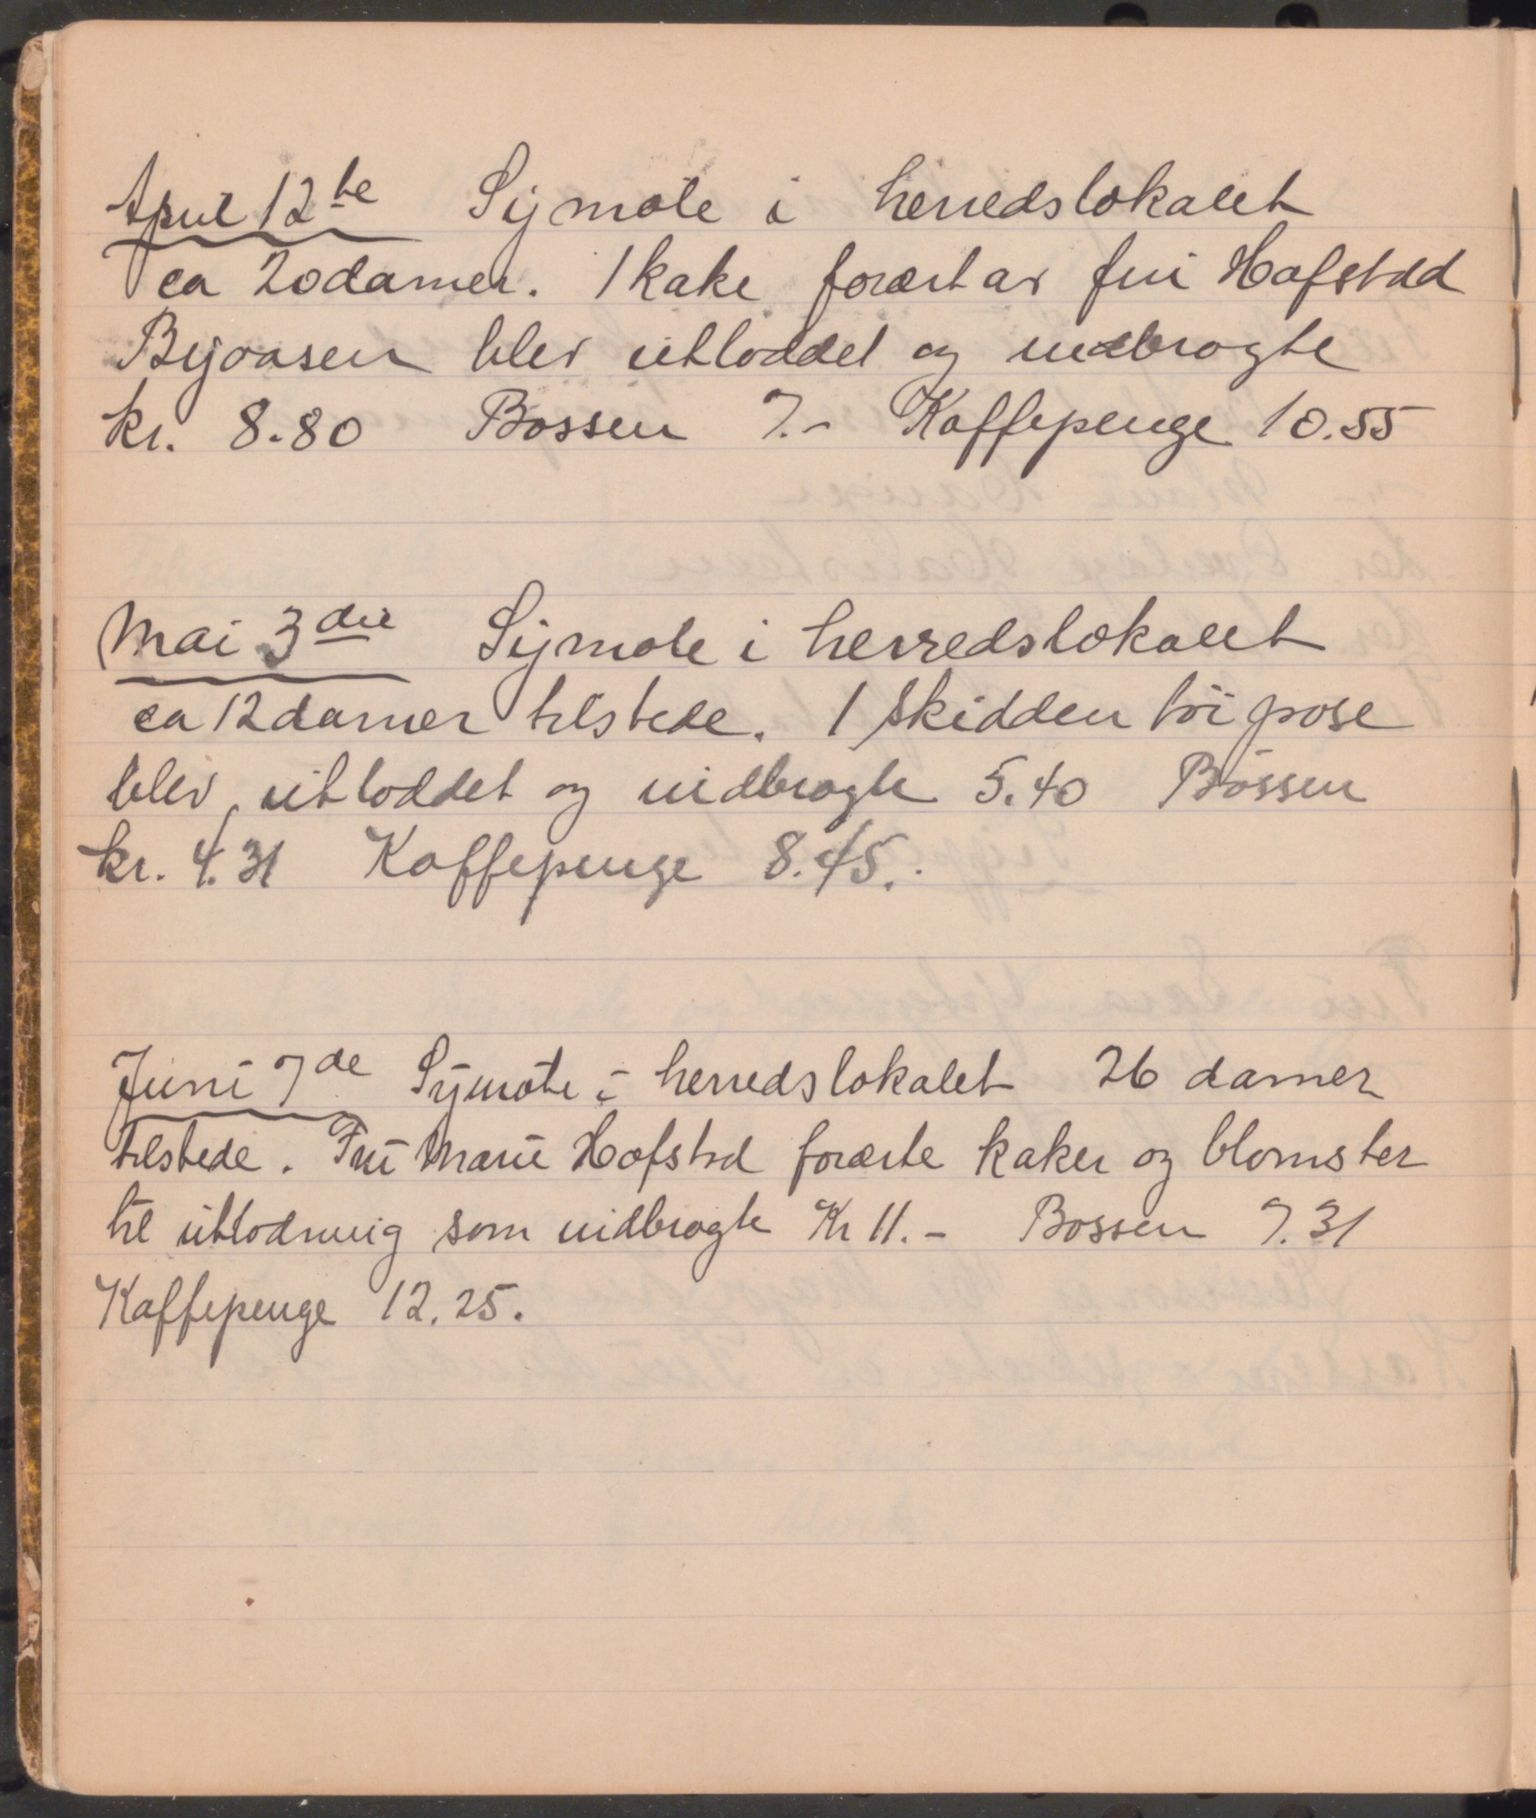 April 12te Symøte i herredslokalet
ca 20 damer. 1 kake forært av fru Hafstad
Byåsen blev utloddet og indbragte
kr. 8.80 Bøssen 7.- Kaffepenge 10.55
Mai 3die Symøte i herredslokalet
ca 12 damer tilstede. 1 skidden töi pose
blev utloddet og indbragte 5.40 Bøssen
kr. 4.31 Kaffepenge 8.45.
Juni 7de Symøte i herredslokalet 26 damer
tilstede. Fru Marie Hafstad forærte kaker og blomster
til utlodning som indbragte Kr 11.- Bøssen 7.31
Kaffepenge 12.25.